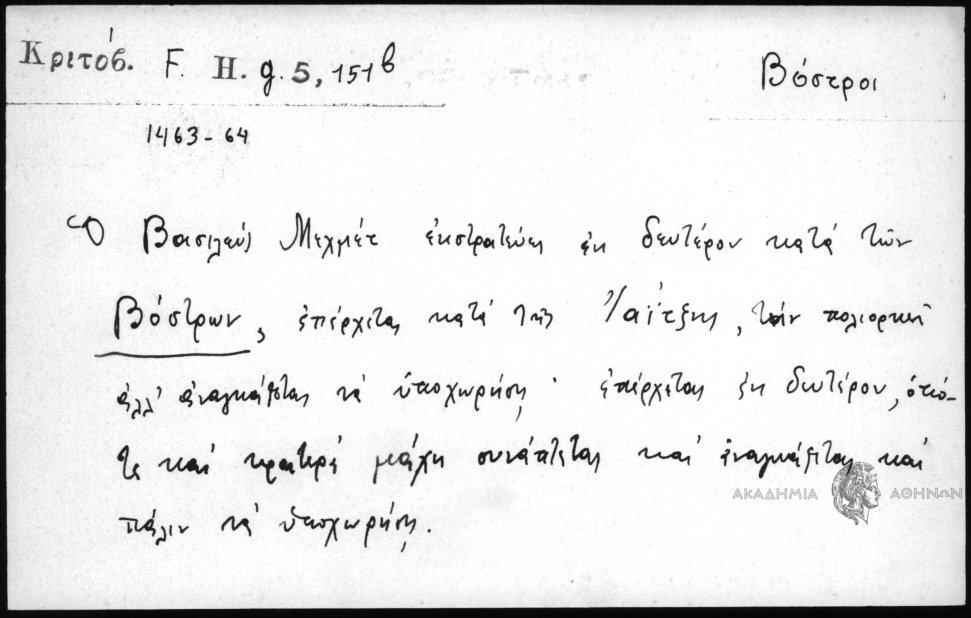 Κριτόβ. F. H. g. 5, 151b
Βόστροι
1463-64
Ὁ Βασιλεύς Μεχμέτ ἐκστρατεύει ἐκ δευτέρου κατά τῶν
Βόστρων, ἐπέρχεται κατά τῆς Γιαΐτζης, τήν πολιορκεῖ
ἀλλ' ἀναγκάζεται νά ὑποχωρήσῃ· ἐπέρχεται ἐκ δευτέρου, ὁπό-
τε καί κρατερά μάχη συνάπτεται καί ἀναγκάζεται καί
πάλιν νά ὑποχωρήσῃ.
ΑΚΑΔΗΜΙΑ ΑΘΗΝΩΝ